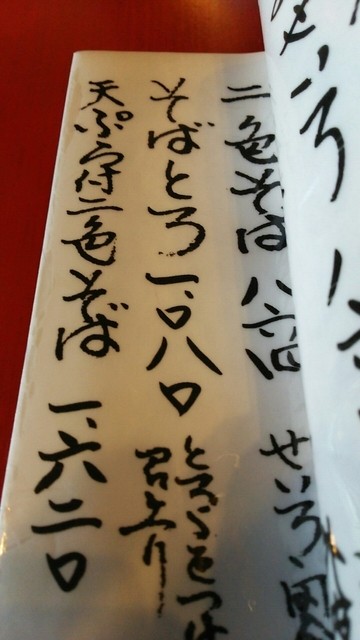 二色そば 八六四
せいろ、田
そばとろ 一、〇八〇
とろろをつけ
召上り
天ぷら付二色そば 一、六二〇